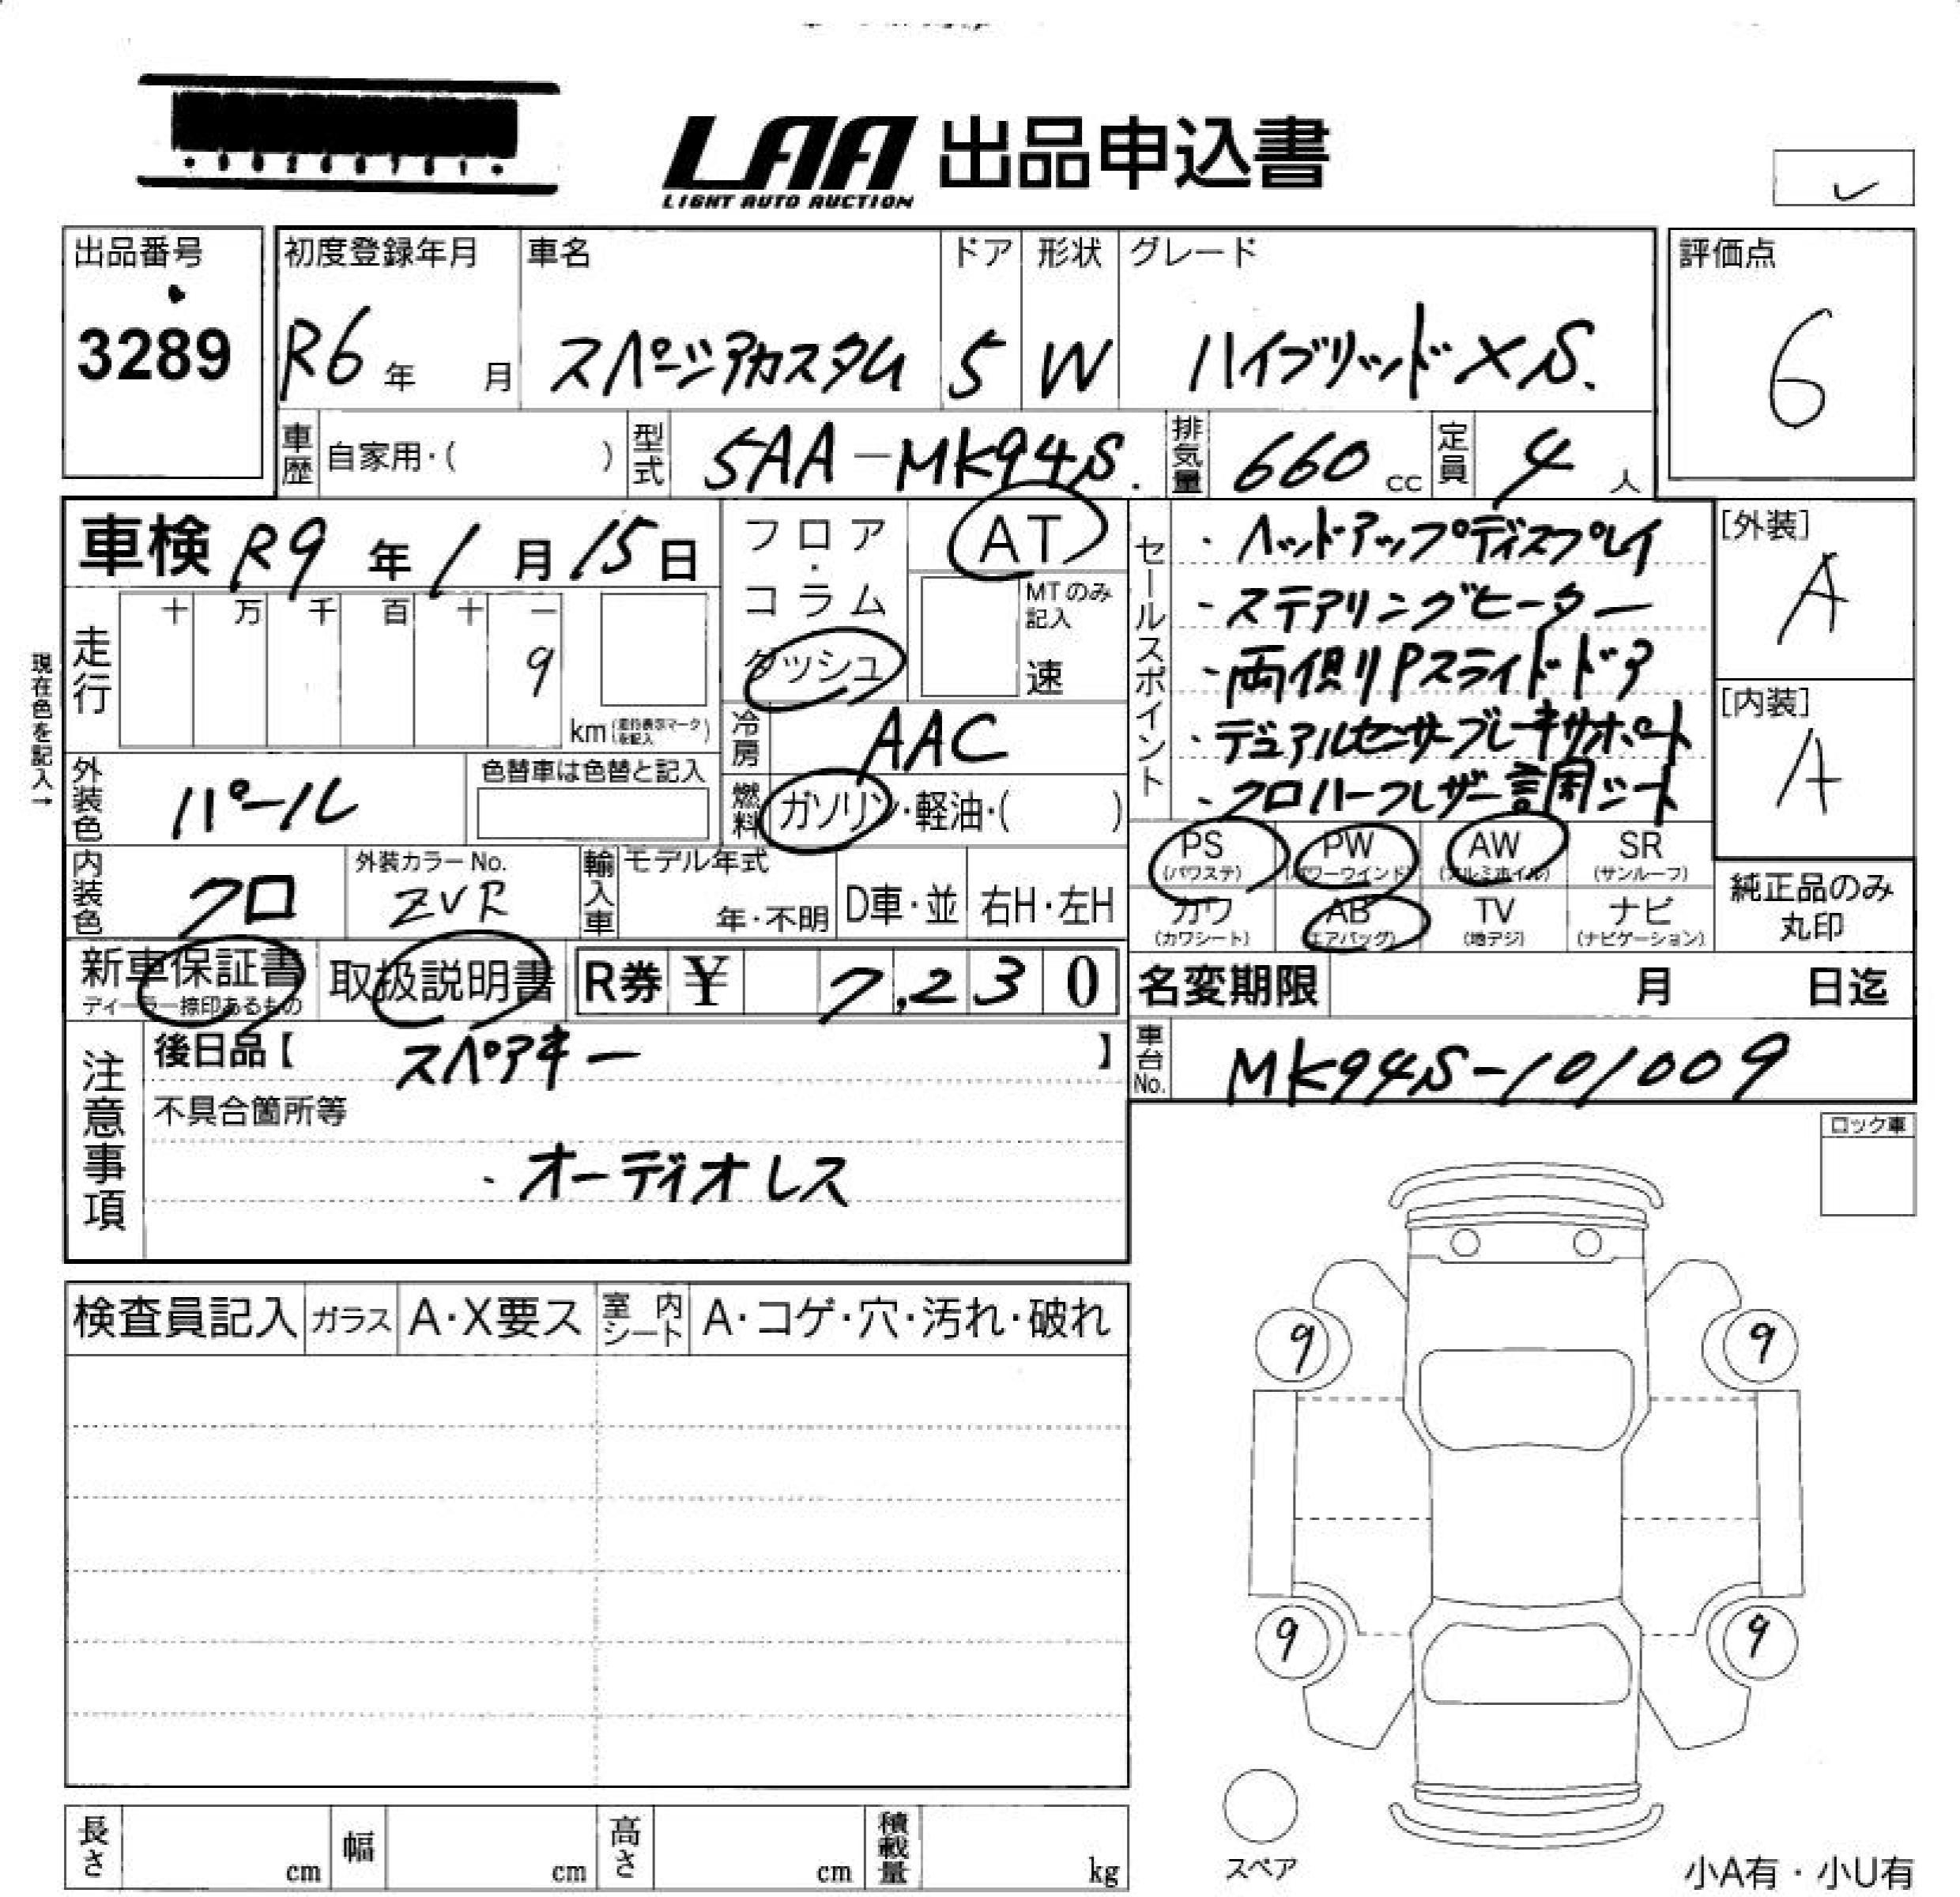 LAA 出品申込書
LIGHT AUTO AUCTION
出品番号
3289
初度登録年月
R6年 月
車名
スペーシアカスタム
ドア
5
形状
W
グレード
ハイブリッドXS.
評価点
6
車歴 自家用・( )
型式 5AA-MK94S.
排気量 660 cc
定員 4 人
車検 R9年1月15日
走行 十 万 千 百 十 一
9
km (走行表示マークを記入)
現在色を記入→
外装色 パール
色替車は色替と記入
内装色 クロ
外装カラーNo.
ZVR
フロア・コラム
ダッシュ
AT
MTのみ記入
速
冷房 AAC
燃料 ガソリン・軽油・( )
輸入車 モデル年式
年・不明
D車・並 右H・左H
セールスポイント
・ヘッドアップディスプレイ
・ステアリングヒーター
・両側Pスライドドア
・デュアルセンサーブレーキサポート
・クロハーフレザー調シート
[外装]
A
[内装]
A
PS (パワステ) PW (パワーウインド) AW (アルミホイル) SR (サンルーフ)
カワ (カワシート) AB (エアバッグ) TV (地デジ) ナビ (ナビゲーション)
純正品のみ
丸印
新車保証書
ディーラー捺印あるもの
取扱説明書
R券 ¥ 7,230
名変期限 月 日迄
車台No. MK94S-101009
注意事項
後日品【 スペアキー 】
不具合箇所等
・オーディオレス
ロック車
検査員記入 ガラス A・X要ス 室内シート A・コゲ・穴・汚れ・破れ
9 9
9 9
スペア
長さ cm 幅 cm 高さ cm 積載量 kg
小A有・小U有